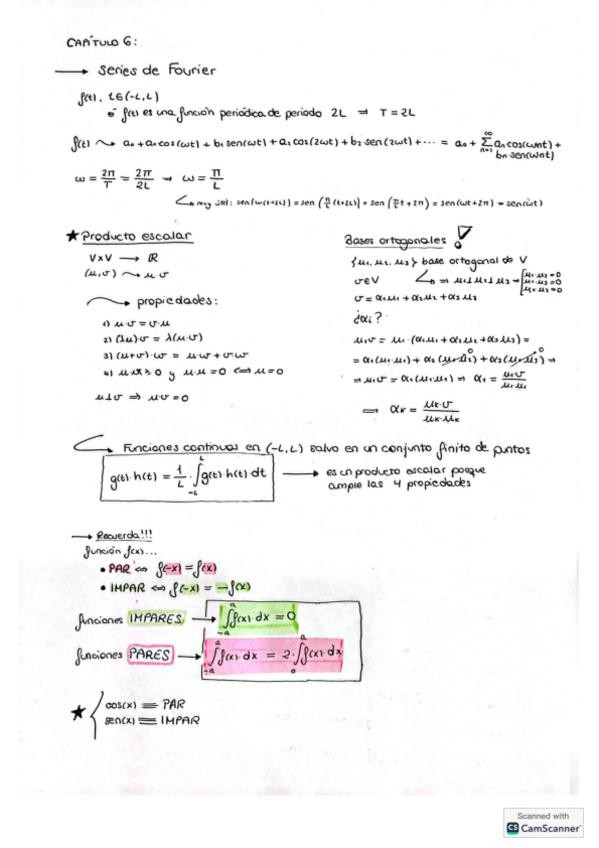 CAPÍTULO 6:
→ Series de Fourier
f(t), t∈(-L,L)
f(t) es una función periódica de periodo 2L ⇒ T = 2L
f(t) ⤳ a₀ + a₁cos(ωt) + b₁sen(ωt) + a₂cos(2ωt) + b₂sen(2ωt) + ⋯ = a₀ + ∑_{n=1}^{∞} aₙcos(ωnt) +
bₙsen(ωnt)
ω = 2π/T = 2π/2L → ω = π/L
muy útil: sen(ω(t+2L)) = sen(π/L(t+2L)) = sen(π/L t + 2π) = sen(ωt+2π) = sen(ωt)
★ Producto escalar
V×V → ℝ
(u,v) ⤳ u·v
propiedades:
1) u·v = v·u
2) (λu)·v = λ(u·v)
3) (u+v)·w = u·w + v·w
4) u·u ≥ 0 y u·u = 0 ⟺ u = 0
u⊥v ⇒ u·v = 0
Bases ortogonales!
{u₁, u₂, u₃} base ortogonal de V
v∈V ⇒ u₁⊥u₂⊥u₃ → [u₁·u₂=0
u₁·u₃=0
u₂·u₃=0
v = α₁u₁ + α₂u₂ + α₃u₃
¿αᵢ?
u₁v = u₁·(α₁u₁ + α₂u₂ + α₃u₃) =
= α₁(u₁·u₁) + α₂(u₁·u₂)⁰ + α₃(u₁·u₃)⁰ ⇒
⇒ u₁v = α₁(u₁·u₁) ⇒ α₁ = u₁v/u₁·u₁
⇒ αₖ = uₖ·v/uₖ·uₖ
Funciones continuas en (-L,L) salvo en un conjunto finito de puntos
g(t)·h(t) = 1/L · ∫_{-L}^{L} g(t)·h(t) dt → es un producto escalar porque
cumple las 4 propiedades
→ Recuerda!!!
función f(x)...
• PAR ⟺ f(-x) = f(x)
• IMPAR ⟺ f(-x) = -f(x)
funciones IMPARES → ∫_{-a}^{a} f(x)·dx = 0
funciones PARES → ∫_{-a}^{a} f(x)·dx = 2·∫_{0}^{a} f(x)·dx
★ { cos(x) ≡ PAR
sen(x) ≡ IMPAR
Scanned with
CS CamScanner